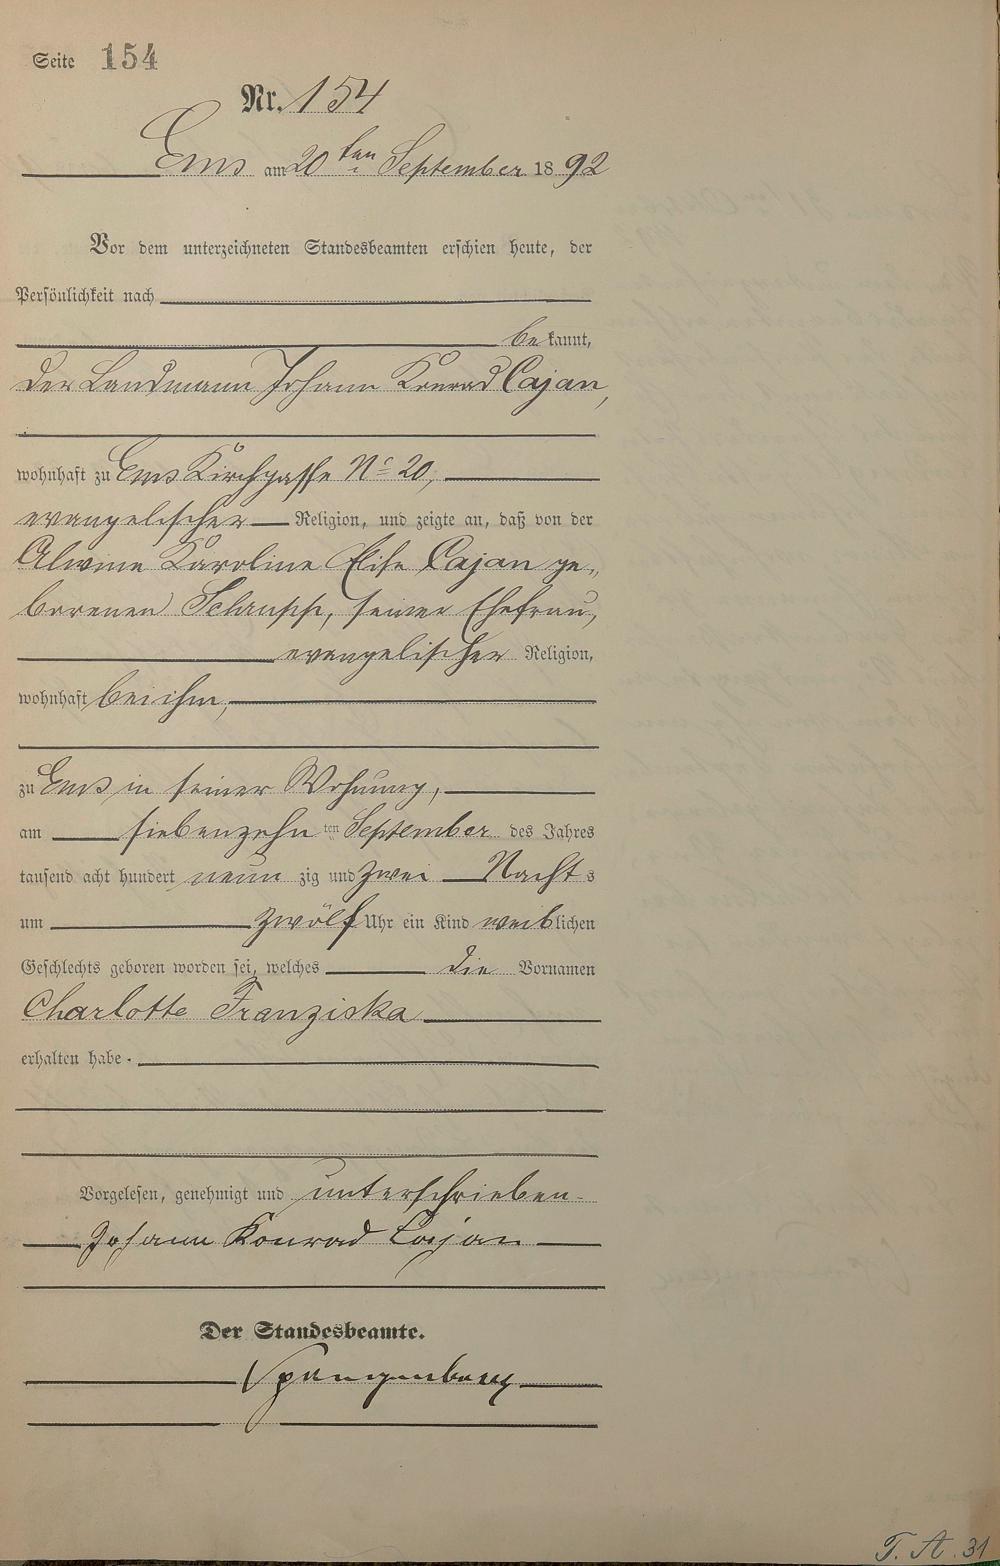 Seite 154
Nr. 154
Ems am 20ten September 1892
Vor dem unterzeichneten Standesbeamten erschien heute, der
Persönlichkeit nach
bekannt,
der Landmann Johann Konrad Cajan,
wohnhaft zu Ems Kirchgasse No 20,
evangelischer Religion, und zeigte an, daß von der
Alwine Karoline Elise Cajan ge-
borenen Schupp, seiner Ehefrau,
evangelischer Religion,
wohnhaft bei ihm,
zu Ems in seiner Wohnung,
am siebenzehnten September des Jahres
tausend acht hundert neunzig und zwei Nachts
um zwölf Uhr ein Kind weiblichen
Geschlechts geboren worden sei, welches die Vornamen
Charlotte Franziska
erhalten habe.
Vorgelesen, genehmigt und unterschrieben.
Johann Konrad Cajan
Der Standesbeamte.
Spangenberg
T. A. 31